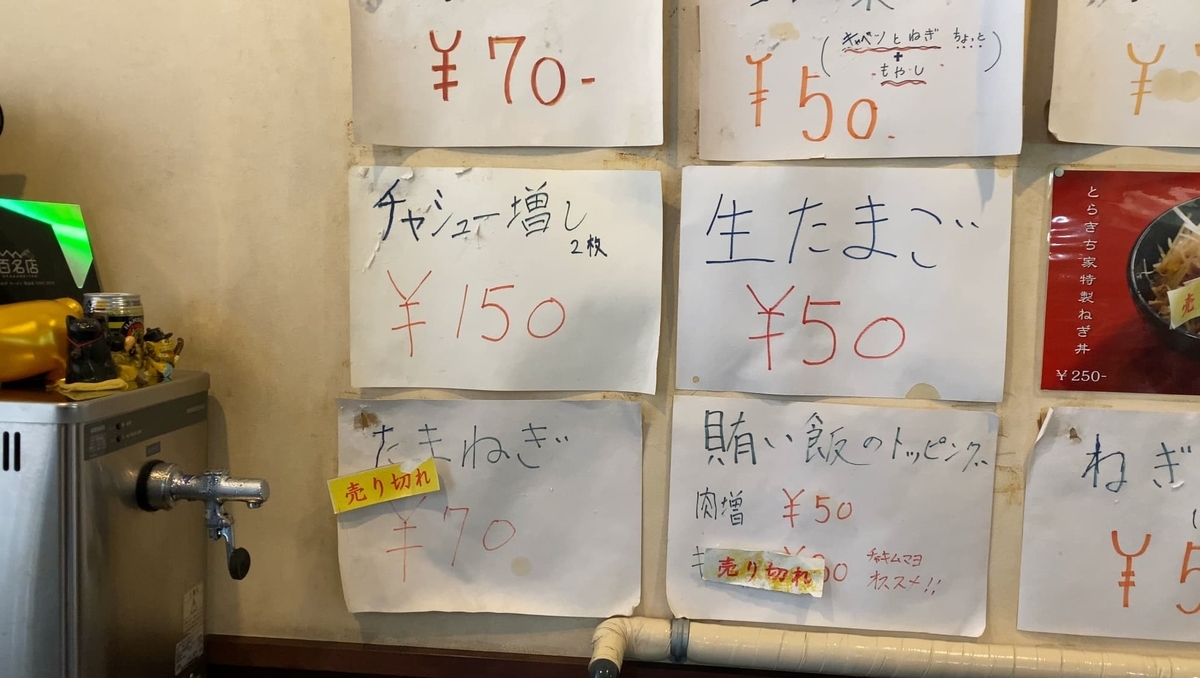 ¥70-
(キャベツとねぎ ちょっと
+
もやし)
¥50.
チャシュー増し
2枚
¥150
生たまご
¥50
とらきち家特製ねぎ丼
¥250-
百名店
たまねぎ
売り切れ
¥70
賄い飯のトッピング
肉増 ¥50
売り切れ
チャキムマヨ
オススメ!!
ねぎ
¥5